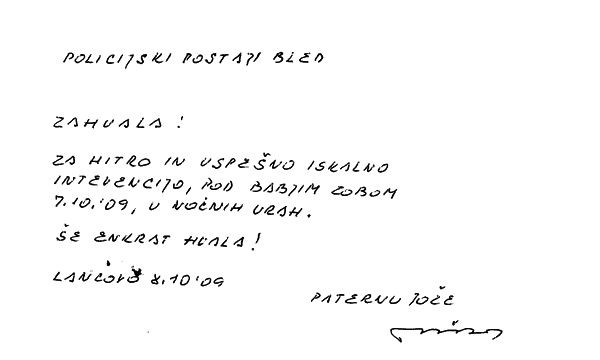 POLICIJSKI POSTAJI BLED
ZAHVALA!
ZA HITRO IN USPEŠNO ISKALNO
INTEVENCIJO, POD BABJIM ZOBOM
7.10.'09, V NOČNIH URAH.
ŠE ENKRAT HVALA!
LANČOVO 8.10'09
PATERNU JOŽE